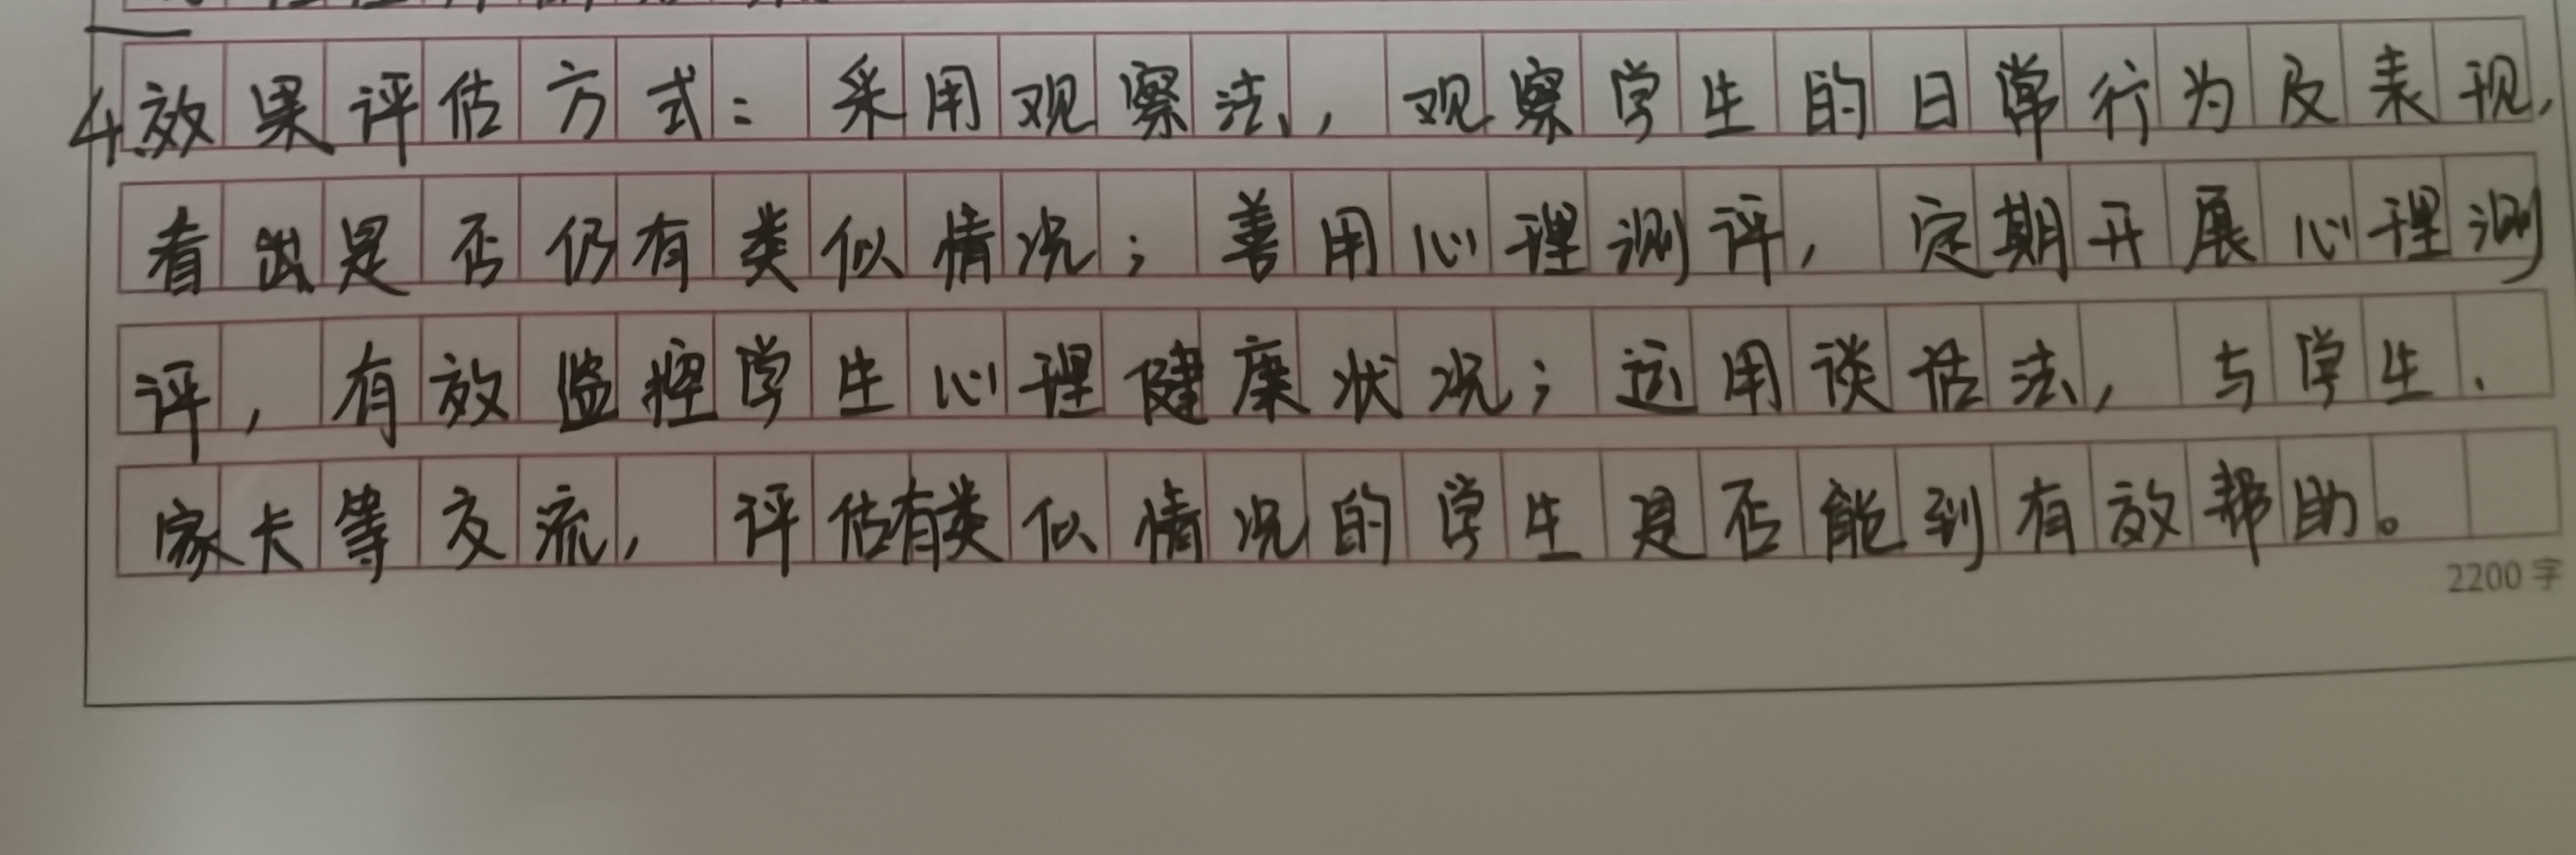 4.效果评估方式：采用观察法，观察学生的日常行为及表现，
看出是否仍有类似情况；善用心理测评，定期开展心理测
评，有效监控学生心理健康状况；运用谈话法，与学生、
家长等交流，评估有类似情况的学生是否能到有效帮助。
2200字